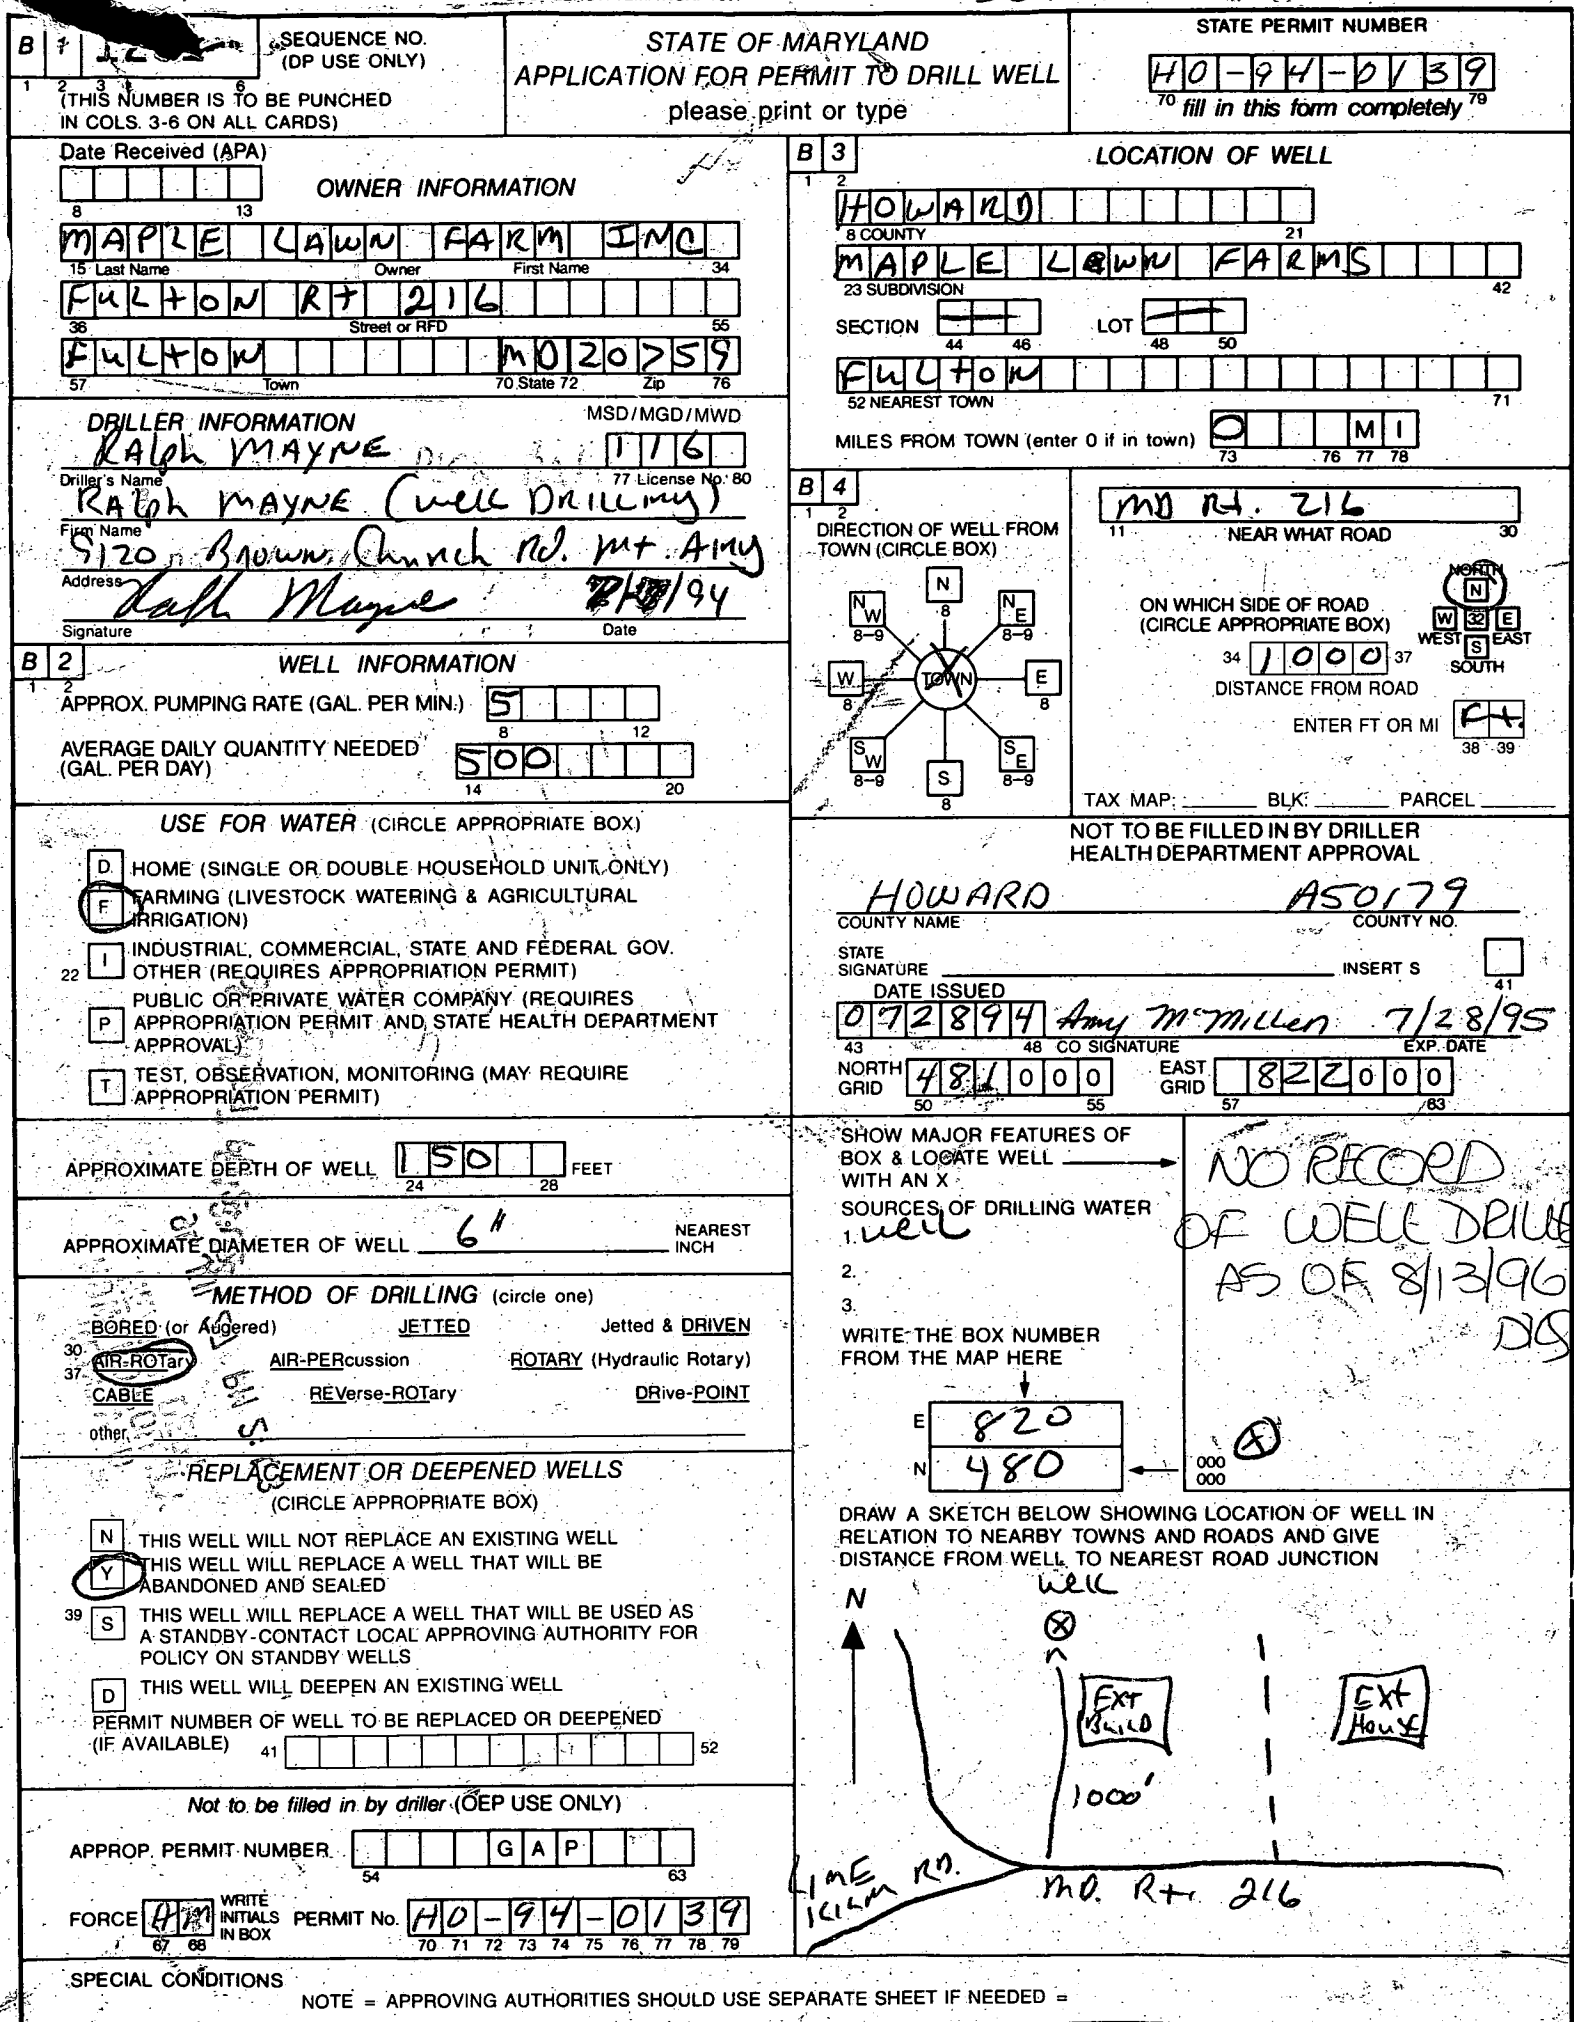 B 1
SEQUENCE NO.
(DP USE ONLY)
1 2 3 6
(THIS NUMBER IS TO BE PUNCHED
IN COLS. 3-6 ON ALL CARDS)
STATE OF MARYLAND
APPLICATION FOR PERMIT TO DRILL WELL
please print or type
STATE PERMIT NUMBER
HO-94-0139
70 fill in this form completely 79
Date Received (APA)
8 13
OWNER INFORMATION
MAPLE LAWN FARM INC
15 Last Name Owner First Name 34
FULTON RT 216
36 Street or RFD 55
FULTON MD 20759
57 Town 70 State 72 Zip 76
DRILLER INFORMATION
MSD/MGD/MWD
RALPH MAYNE 116
Driller's Name 77 License No. 80
RALPH MAYNE (WELL DRILLING)
Firm Name
9120 Brown Church Rd. Mt. Airy
Address
Ralph Mayne /94
Signature Date
B 2
1 2
WELL INFORMATION
APPROX. PUMPING RATE (GAL. PER MIN.) 5
8 12
AVERAGE DAILY QUANTITY NEEDED
(GAL. PER DAY) 500
14 20
USE FOR WATER (CIRCLE APPROPRIATE BOX)
D HOME (SINGLE OR DOUBLE HOUSEHOLD UNIT ONLY)
F FARMING (LIVESTOCK WATERING & AGRICULTURAL
IRRIGATION)
22 I INDUSTRIAL, COMMERCIAL, STATE AND FEDERAL GOV.
OTHER (REQUIRES APPROPRIATION PERMIT)
P PUBLIC OR PRIVATE WATER COMPANY (REQUIRES
APPROPRIATION PERMIT AND STATE HEALTH DEPARTMENT
APPROVAL)
T TEST, OBSERVATION, MONITORING (MAY REQUIRE
APPROPRIATION PERMIT)
APPROXIMATE DEPTH OF WELL 150 FEET
24 28
APPROXIMATE DIAMETER OF WELL 6" NEAREST
INCH
METHOD OF DRILLING (circle one)
BORED (or Augered) JETTED Jetted & DRIVEN
30
37 AIR-ROTary AIR-PERcussion ROTARY (Hydraulic Rotary)
CABLE REVerse-ROTary DRive-POINT
other
REPLACEMENT OR DEEPENED WELLS
(CIRCLE APPROPRIATE BOX)
N THIS WELL WILL NOT REPLACE AN EXISTING WELL
Y THIS WELL WILL REPLACE A WELL THAT WILL BE
ABANDONED AND SEALED
39 S THIS WELL WILL REPLACE A WELL THAT WILL BE USED AS
A STANDBY-CONTACT LOCAL APPROVING AUTHORITY FOR
POLICY ON STANDBY WELLS
D THIS WELL WILL DEEPEN AN EXISTING WELL
PERMIT NUMBER OF WELL TO BE REPLACED OR DEEPENED
(IF AVAILABLE) 41 52
Not to be filled in by driller (OEP USE ONLY)
APPROP. PERMIT NUMBER G A P
54 63
FORCE AM WRITE INITIALS IN BOX PERMIT No. HO-94-0139
67 68 70 71 72 73 74 75 76 77 78 79
B 3
1 2
LOCATION OF WELL
HOWARD
8 COUNTY 21
MAPLE LAWN FARMS
23 SUBDIVISION 42
SECTION LOT
44 46 48 50
FULTON
52 NEAREST TOWN 71
MILES FROM TOWN (enter 0 if in town) 0 M I
73 76 77 78
B 4
1 2
DIRECTION OF WELL FROM
TOWN (CIRCLE BOX)
N
8
NW NE
8-9 8-9
W TOWN E
8 8
SW SE
8-9 8-9
S
8
MD Rt. 216
11 NEAR WHAT ROAD 30
ON WHICH SIDE OF ROAD
(CIRCLE APPROPRIATE BOX)
NORTH
N
W 32 E
WEST EAST
S
SOUTH
34 1000 37
DISTANCE FROM ROAD
ENTER FT OR MI Ft.
38 39
TAX MAP: BLK: PARCEL
NOT TO BE FILLED IN BY DRILLER
HEALTH DEPARTMENT APPROVAL
HOWARD A50179
COUNTY NAME COUNTY NO.
STATE
SIGNATURE INSERT S
41
DATE ISSUED
072894 Amy McMillen 7/28/95
43 48 CO SIGNATURE EXP. DATE
NORTH GRID 481000 EAST GRID 822000
50 55 57 63
SHOW MAJOR FEATURES OF
BOX & LOCATE WELL
WITH AN X
SOURCES OF DRILLING WATER
1. well
2.
3.
WRITE THE BOX NUMBER
FROM THE MAP HERE
E 820
N 480
NO RECORD
OF WELL DRILLED
AS OF 8/13/96
X
000
000
DRAW A SKETCH BELOW SHOWING LOCATION OF WELL IN
RELATION TO NEARBY TOWNS AND ROADS AND GIVE
DISTANCE FROM WELL TO NEAREST ROAD JUNCTION
well
N
X
EXT BUILD
EXT HOUSE
1000'
LIME KILN RD.
MD. Rt. 216
SPECIAL CONDITIONS
NOTE = APPROVING AUTHORITIES SHOULD USE SEPARATE SHEET IF NEEDED =